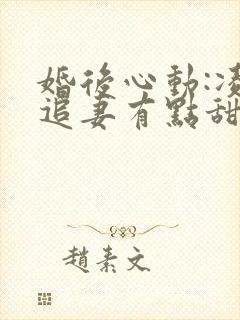 婚後心動:凌
追妻有點甜
趙素文